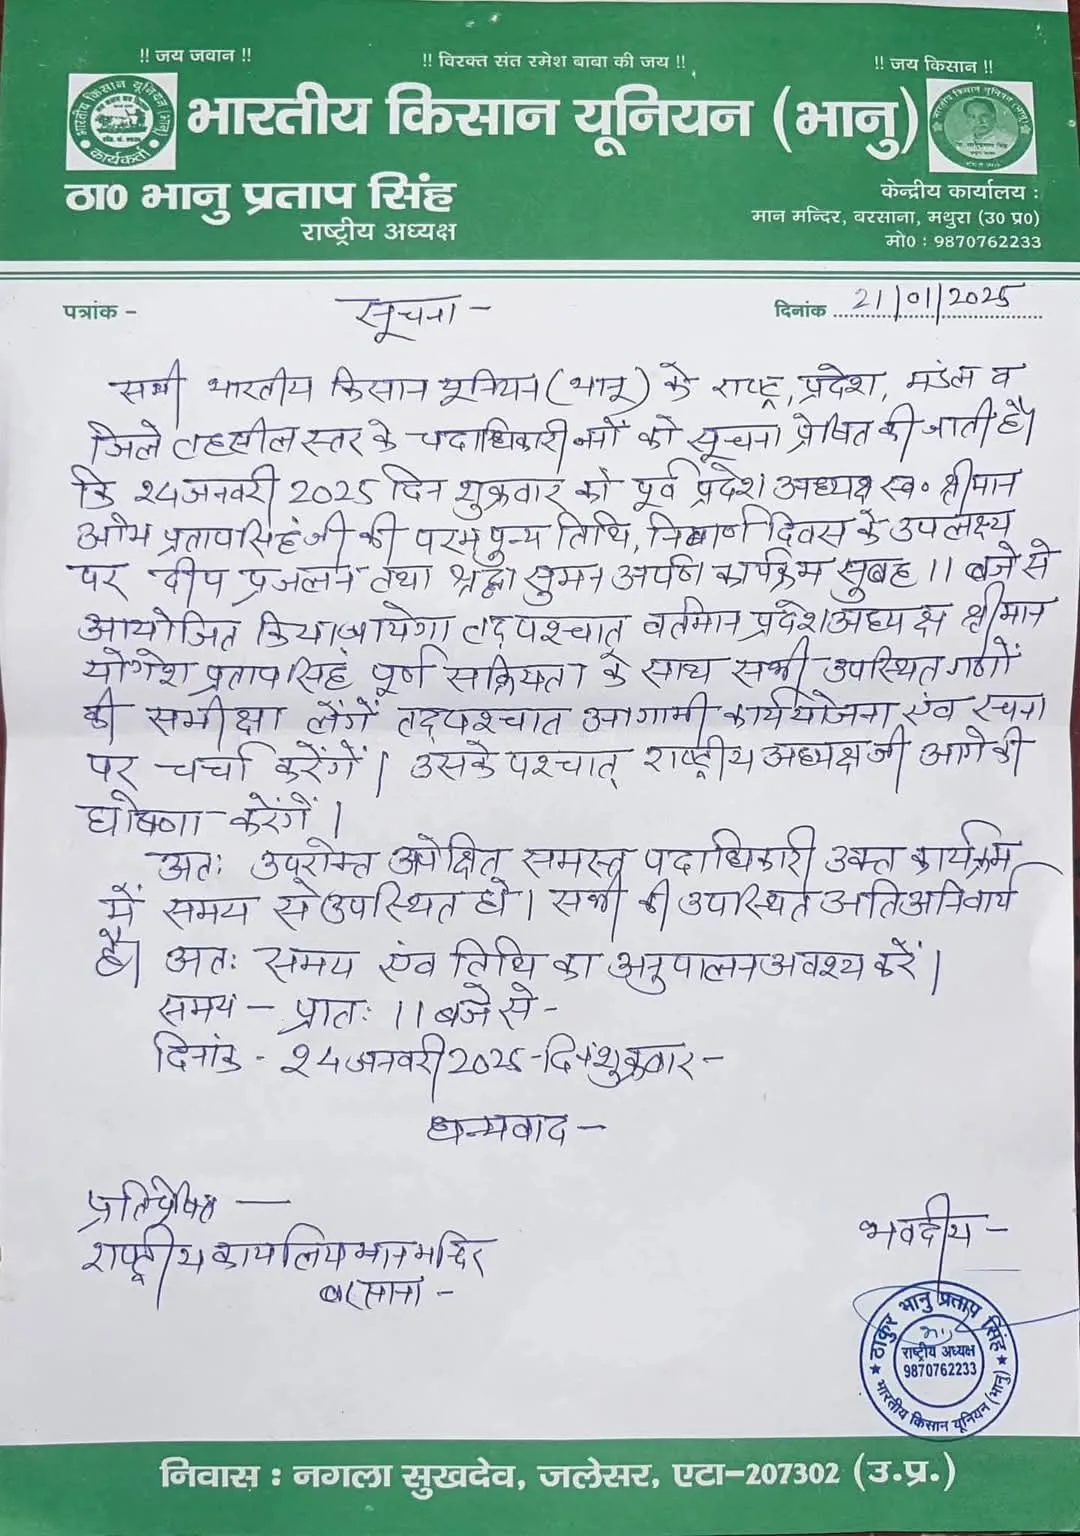 !! जय जवान !!
!! विरक्त संत रमेश बाबा की जय !!
!! जय किसान !!
भारतीय किसान यूनियन (भानु)
ठा0 भानु प्रताप सिंह
राष्ट्रीय अध्यक्ष
केन्द्रीय कार्यालय :
मान मन्दिर, बरसाना, मथुरा (उ0 प्र0)
मो0 : 9870762233
पत्रांक -
सूचना -
दिनांक 21/01/2025
सभी भारतीय किसान यूनियन (भानू) के राष्ट्र, प्रदेश, मंडल व
जिले तहसील स्तर के पदाधिकारी को सूचना प्रेषित की जाती है।
कि 24 जनवरी 2025 दिन शुक्रवार को पूर्व प्रदेश अध्यक्ष स्व० श्रीमान
ओम प्रताप सिंह जी की परम पुन्य तिथि, निर्वाण दिवस के उपलक्ष्य
पर दीप प्रजलन तथा श्रद्धा सुमन अर्पण कार्यक्रम सुबह 11 बजे से
आयोजित किया जायेगा तद्पश्चात् वर्तमान प्रदेश अध्यक्ष श्रीमान
योगेश प्रताप सिंह पूर्ण सक्रियता के साथ सभी उपस्थित गणों
की समीक्षा लेंगें तद्पश्चात आगामी कार्ययोजना एंव रचना
पर चर्चा करेंगें। उसके पश्चात् राष्ट्रीय अध्यक्ष जी आगे की
घोषणा करेंगें।
अतः उपरोक्त अपेक्षित समस्त पदाधिकारी उक्त कार्यक्रम
में समय से उपस्थित हो। सभी की उपस्थित अति अनिवार्य
है। अतः समय एंव तिथि का अनुपालन अवश्य करें।
समय - प्रातः 11 बजे से -
दिनांक - 24 जनवरी 2025 - दिन शुक्रवार -
धन्यवाद -
प्रतिप्रेषित —
राष्ट्रीय कार्यालय मान मन्दिर
बरसाना -
भवदीय -
ठाकुर भानु प्रताप सिंह
राष्ट्रीय अध्यक्ष
9870762233
भारतीय किसान यूनियन (भानु)
निवास : नगला सुखदेव, जलेसर, एटा-207302 (उ.प्र.)